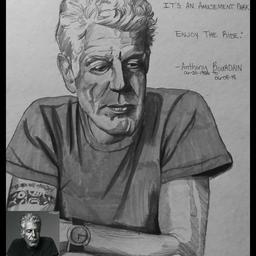 IT'S AN AMUSEMENT PARK
ENJOY THE RIDE."
-Anthony BOURDAIN
06-08-18